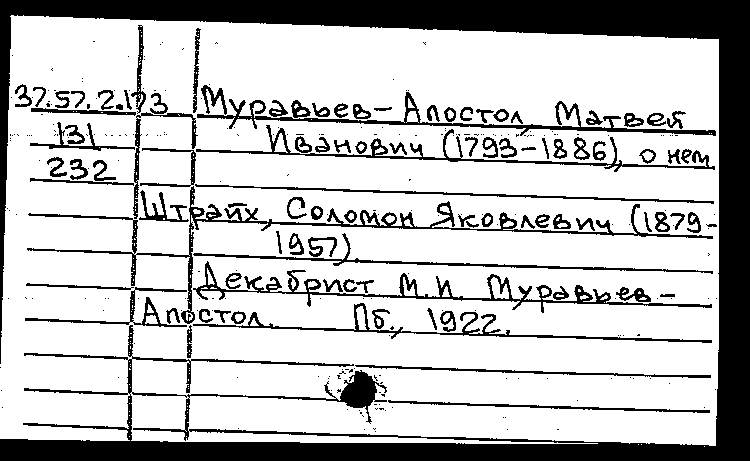 37.57.2.173 Муравьев-Апостол, Матвей
131 Иванович (1793-1886), о нем
232
Штрайх, Соломон Яковлевич (1879-
1957).
Декабрист М.И. Муравьев-
Апостол. Пб., 1922.